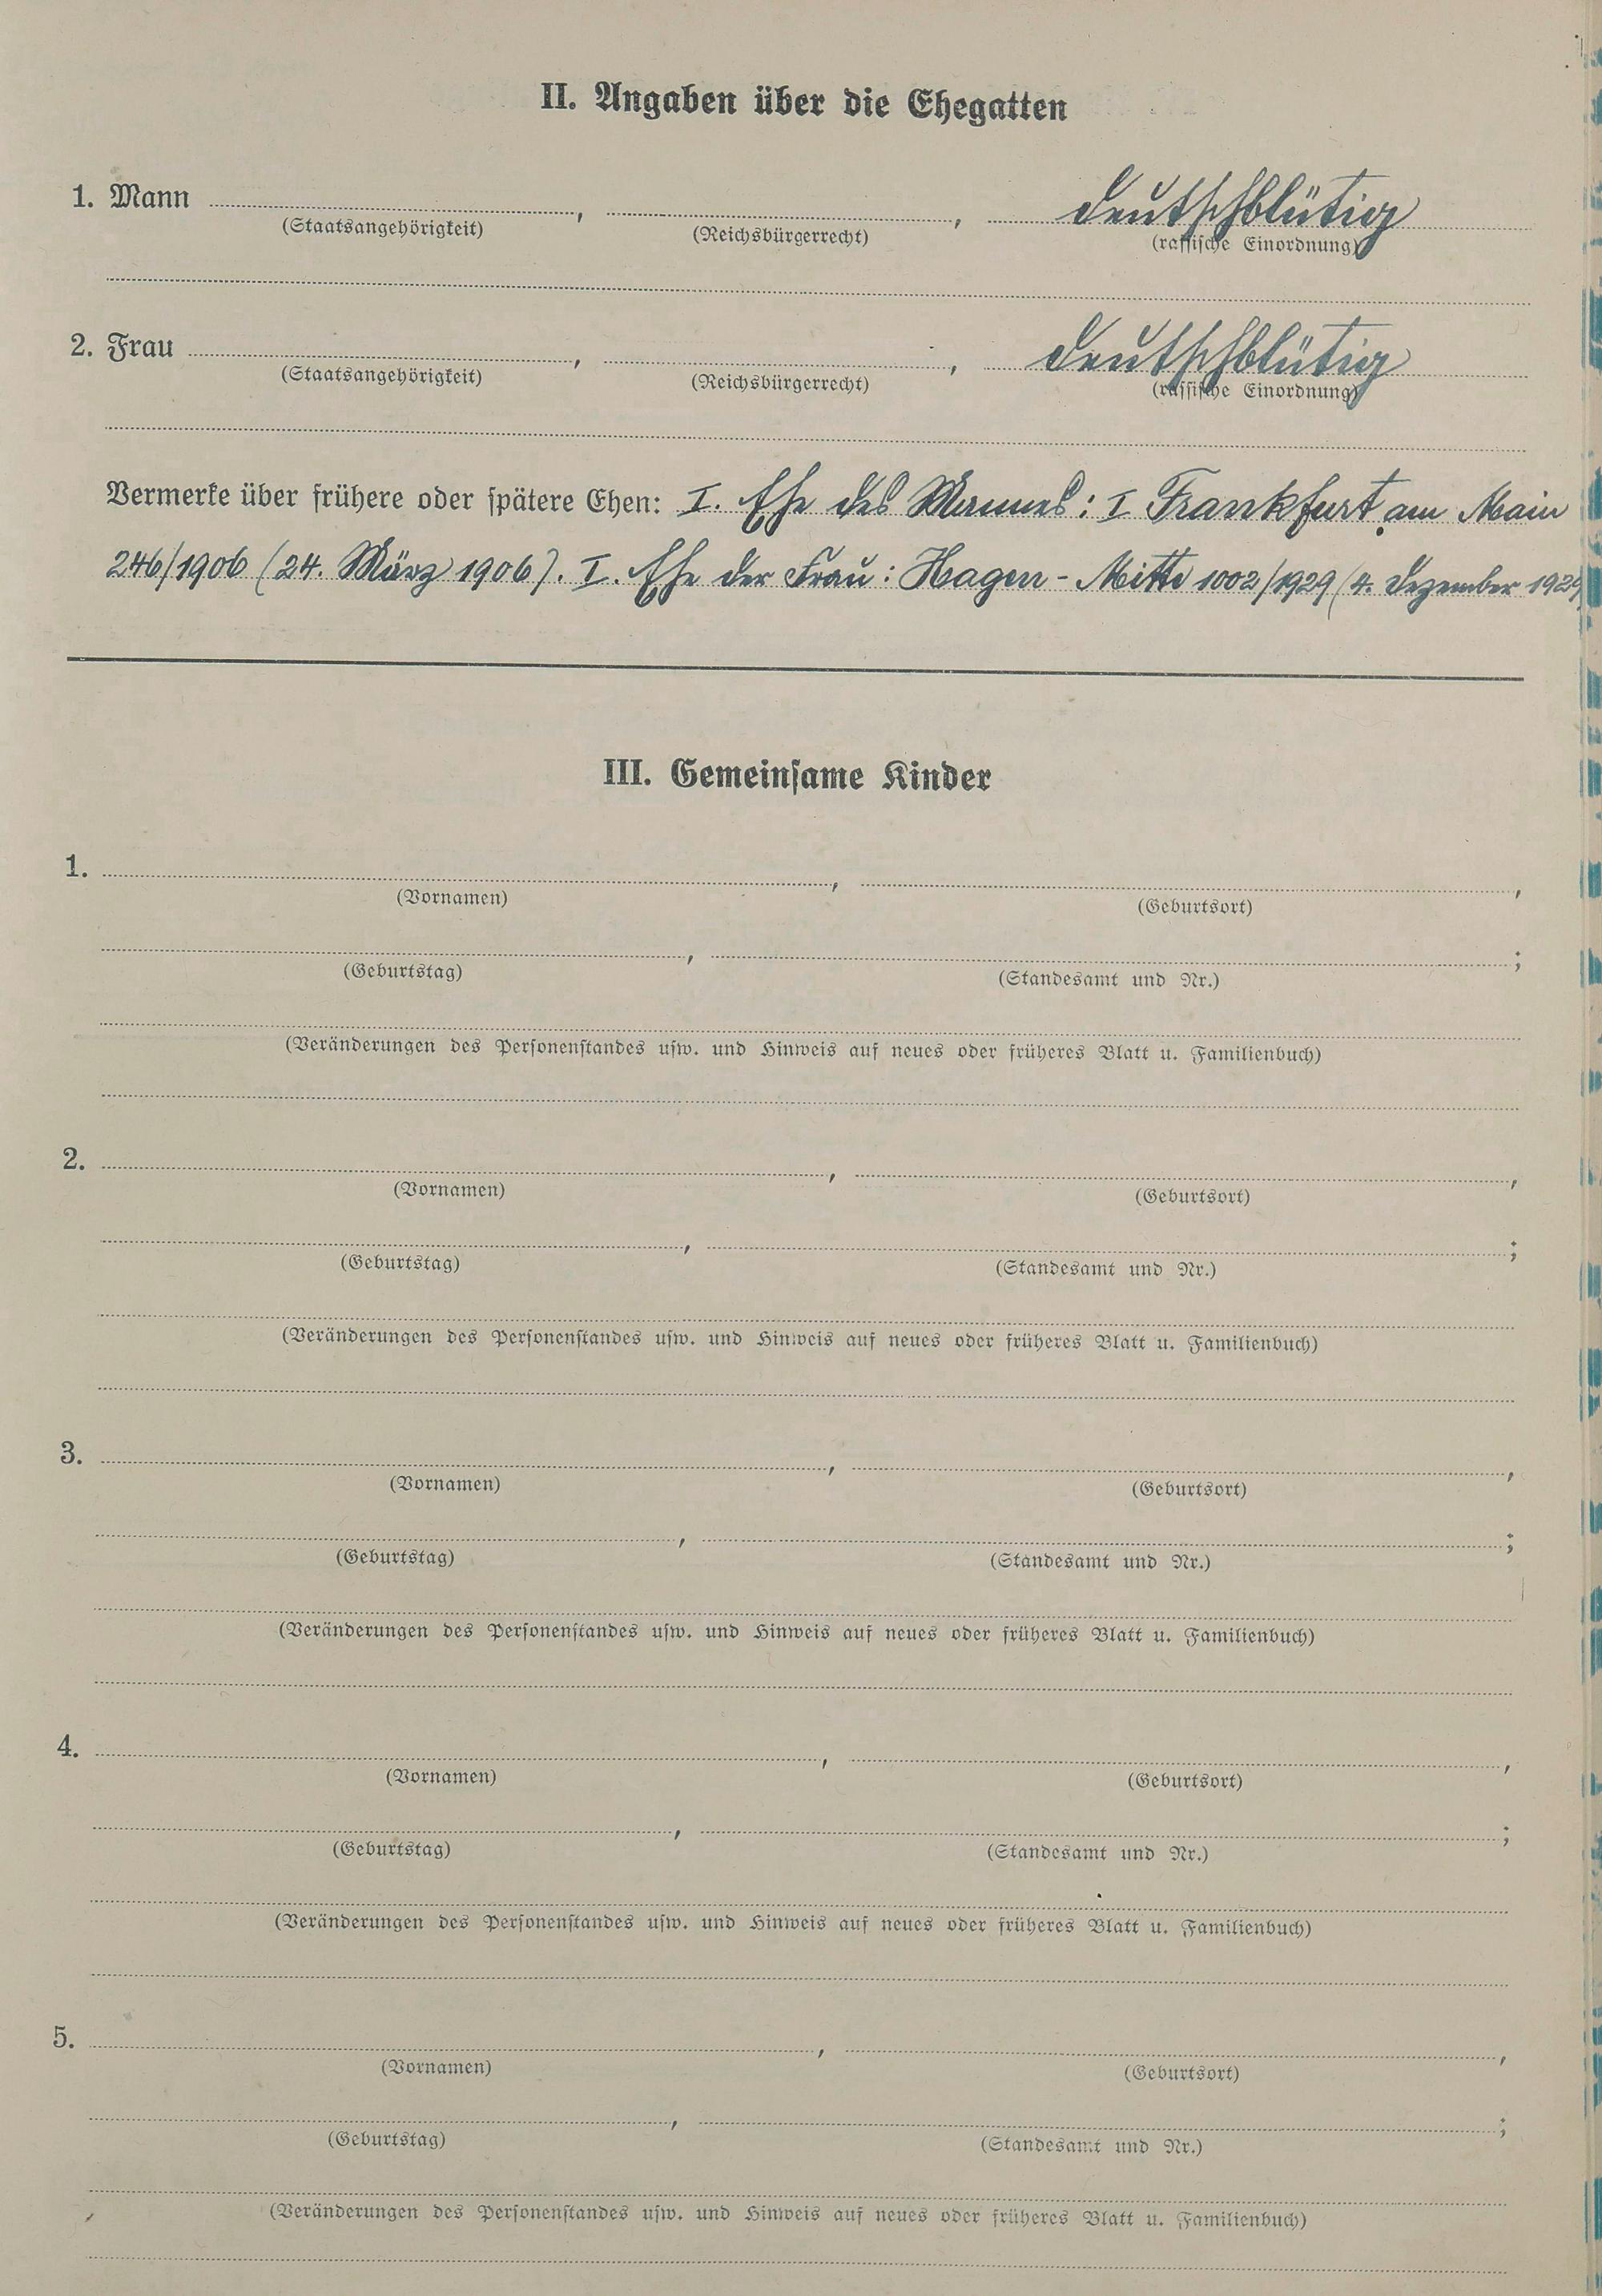 II. Angaben über die Ehegatten
1. Mann , , deutschblütig
(Staatsangehörigkeit) (Reichsbürgerrecht) (rassische Einordnung)
2. Frau , , deutschblütig
(Staatsangehörigkeit) (Reichsbürgerrecht) (rassische Einordnung)
Vermerke über frühere oder spätere Ehen: I. Ehe des Mannes: I Frankfurt am Main
246/1906 (24. März 1906). I. Ehe der Frau: Hagen-Mitte 1002/1929 (4. Dezember 1929)
III. Gemeinsame Kinder
1. , ,
(Vornamen) (Geburtsort)
, ;
(Geburtstag) (Standesamt und Nr.)
(Veränderungen des Personenstandes usw. und Hinweis auf neues oder früheres Blatt u. Familienbuch)
2. , ,
(Vornamen) (Geburtsort)
, ;
(Geburtstag) (Standesamt und Nr.)
(Veränderungen des Personenstandes usw. und Hinweis auf neues oder früheres Blatt u. Familienbuch)
3. , ,
(Vornamen) (Geburtsort)
, ;
(Geburtstag) (Standesamt und Nr.)
(Veränderungen des Personenstandes usw. und Hinweis auf neues oder früheres Blatt u. Familienbuch)
4. , ,
(Vornamen) (Geburtsort)
, ;
(Geburtstag) (Standesamt und Nr.)
(Veränderungen des Personenstandes usw. und Hinweis auf neues oder früheres Blatt u. Familienbuch)
5. , ,
(Vornamen) (Geburtsort)
, ;
(Geburtstag) (Standesamt und Nr.)
(Veränderungen des Personenstandes usw. und Hinweis auf neues oder früheres Blatt u. Familienbuch)